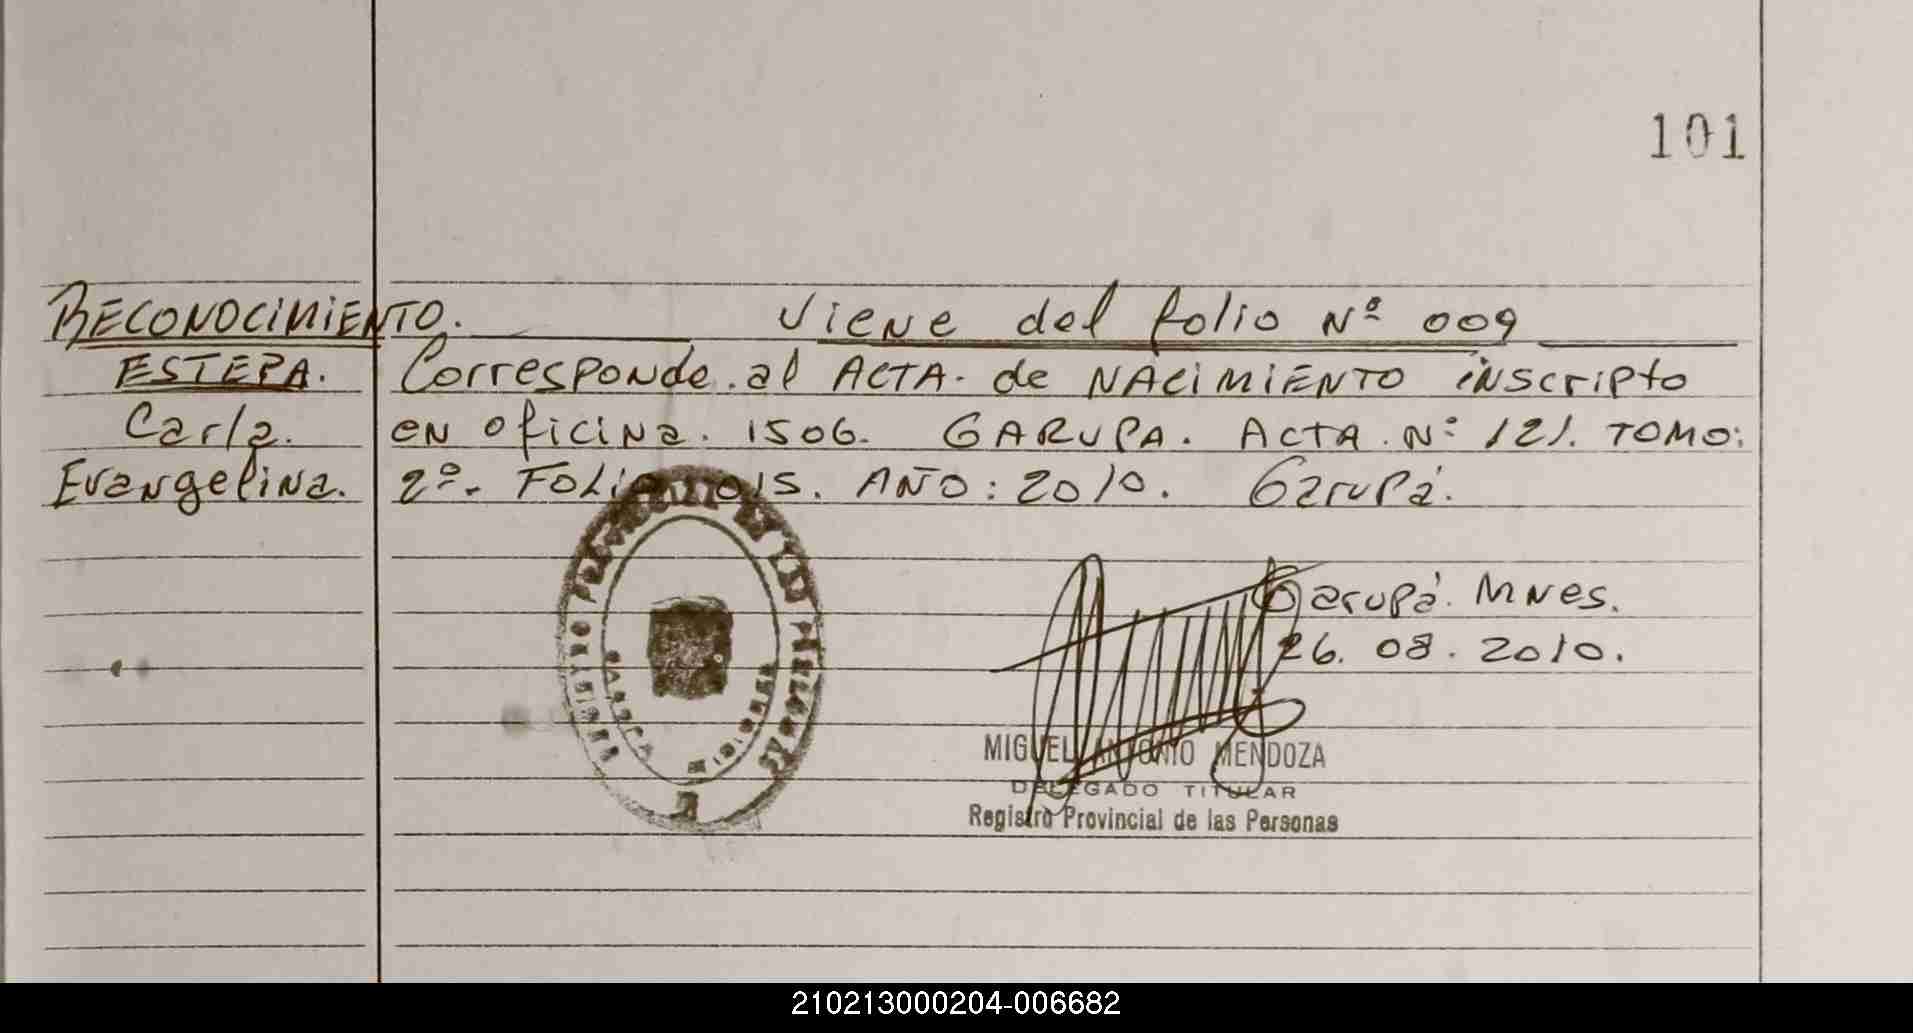 101
RECONOCIMIENTO. Viene del folio Nº 009
ESTEPA. Corresponde. al ACTA. de NACIMIENTO inscripto
Carla. en oficina. 1506. GARUPA. ACTA. Nº 121. TOMO:
Evangelina. 2º. FOLIO 015. AÑO: 2010. Garupá.
Garupá. Mnes.
26. 08. 2010.
MIGUEL ANTONIO MENDOZA
DELEGADO TITULAR
Registro Provincial de las Personas
210213000204-006682